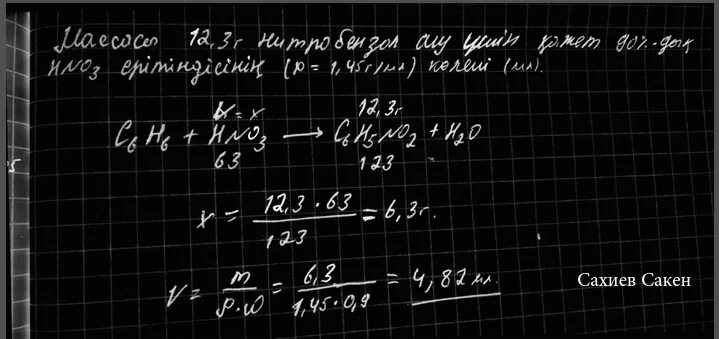 Массасы 12,3г нитробензол алу үшін қажет 90%-дық
HNO3 ерітіндісінің (ρ = 1,45г/мл) көлемі (мл).
m = x 12,3г
C6H6 + HNO3 → C6H5NO2 + H2O
63 123
x = 12,3 · 63 / 123 = 6,3г.
V = m / ρ·ω = 6,3 / 1,45·0,9 = 4,82 мл.
Сахиев Сакен